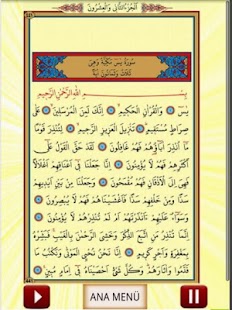 اَلْجُزْءُ الثَّانِي وَالْعِشْرُونَ
سُورَةُ يٰسٓ مَكِّيَّةٌ وَهِيَ
ثَلَاثٌ وَثَمَانُونَ اٰيَةً
بِسْمِ اللّٰهِ الرَّحْمٰنِ الرَّحِيمِ
يٰسٓ ۝ وَالْقُرْاٰنِ الْحَكِيمِ ۝ اِنَّكَ لَمِنَ الْمُرْسَلِينَ ۝ عَلٰى
صِرَاطٍ مُسْتَقِيمٍ ۝ تَنْزِيلَ الْعَزِيزِ الرَّحِيمِ ۝ لِتُنْذِرَ قَوْمًا
مَا اُنْذِرَ اٰبَاؤُهُمْ فَهُمْ غَافِلُونَ ۝ لَقَدْ حَقَّ الْقَوْلُ عَلٰى
اَكْثَرِهِمْ فَهُمْ لَا يُؤْمِنُونَ ۝ اِنَّا جَعَلْنَا فِي اَعْنَاقِهِمْ اَغْلَالًا
فَهِيَ اِلَى الْاَذْقَانِ فَهُمْ مُقْمَحُونَ ۝ وَجَعَلْنَا مِنْ بَيْنِ اَيْدِيهِمْ
سَدًّا وَمِنْ خَلْفِهِمْ سَدًّا فَاَغْشَيْنَاهُمْ فَهُمْ لَا يُبْصِرُونَ ۝
وَسَوَاءٌ عَلَيْهِمْ ءَاَنْذَرْتَهُمْ اَمْ لَمْ تُنْذِرْهُمْ لَا يُؤْمِنُونَ ۝
اِنَّمَا تُنْذِرُ مَنِ اتَّبَعَ الذِّكْرَ وَخَشِيَ الرَّحْمٰنَ بِالْغَيْبِ فَبَشِّرْهُ
بِمَغْفِرَةٍ وَاَجْرٍ كَرِيمٍ ۝ اِنَّا نَحْنُ نُحْيِ الْمَوْتٰى وَنَكْتُبُ مَا
قَدَّمُوا وَاٰثَارَهُمْ وَكُلَّ شَيْءٍ اَحْصَيْنَاهُ فِي اِمَامٍ مُبِينٍ ۝
ANA MENÜ